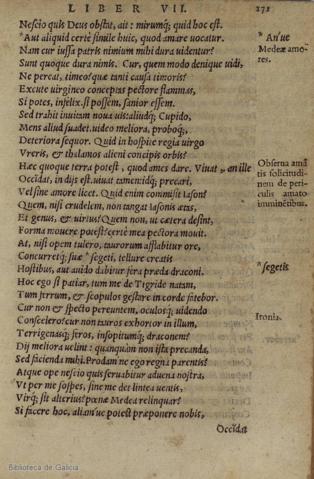 LIBER VII. 271
Nescio quis Deus obstat, ait: mirumq; quid hoc est.
*Aut aliquid certè simile huic, quod amare uocatur.
*An'ue
Nam cur iussa patris nimium mihi dura uidentur?
Medeæ amo-
Sunt quoque dura nimis. Cur, quem modo denique uidi,
res.
Ne pereat, timeo? quæ tanti causa timoris?
Excute uirgineo conceptas pectore flammas,
Si potes, infelix. si possem, sanior essem.
Sed trahit inuitam noua uis: aliudq; Cupido,
Mens aliud suadet. uideo meliora, proboq;,
Deteriora sequor. Quid in hospite regia virgo
Vreris, & thalamos alieni concipis orbis?
Hæc quoque terra potest, quod ames dare. Viuat, an ille
Obserua amā
Occidat, in dijs est. uiuat tamen: idq; precari,
tis solicitudi-
nem de peri-
Vel sine amore licet. Quid enim commisit Iason?
culis amato
Quem, nisi crudelem, non tangat Iasonis ætas,
imminētibus.
Et genus, & uirtus? Quem non, ut cætera desint,
Forma mouere potest? certè mea pectora mouit.
At, nisi opem tulero, taurorum afflabitur ore,
Concurretq; suæ *segeti, tellure creatis
*segetis
Hostibus, aut auido dabitur fera præda draconi.
Hoc ego si patiar, tum me de Tigride natam,
Tum ferrum, & scopulos gestare in corde fatebor.
Cur non & specto pereuntem, oculosq; uidendo
Conscelero? cur non tauros exhortor in illum,
Ironia.
Terrigenasq; feros, insopitumq; draconem?
Dij meliora uelint: quanquàm non ista precanda,
Sed facienda mihi. Prodam ne ego regna parentis?
Atque ope nescio quis seruabitur aduena nostra,
Vt per me sospes, sine me det lintea uentis,
Virq; sit alterius? pœnæ Medea relinquar?
Si facere hoc, aliam'ue potest præponere nobis,
Occidat
Biblioteca de Galicia